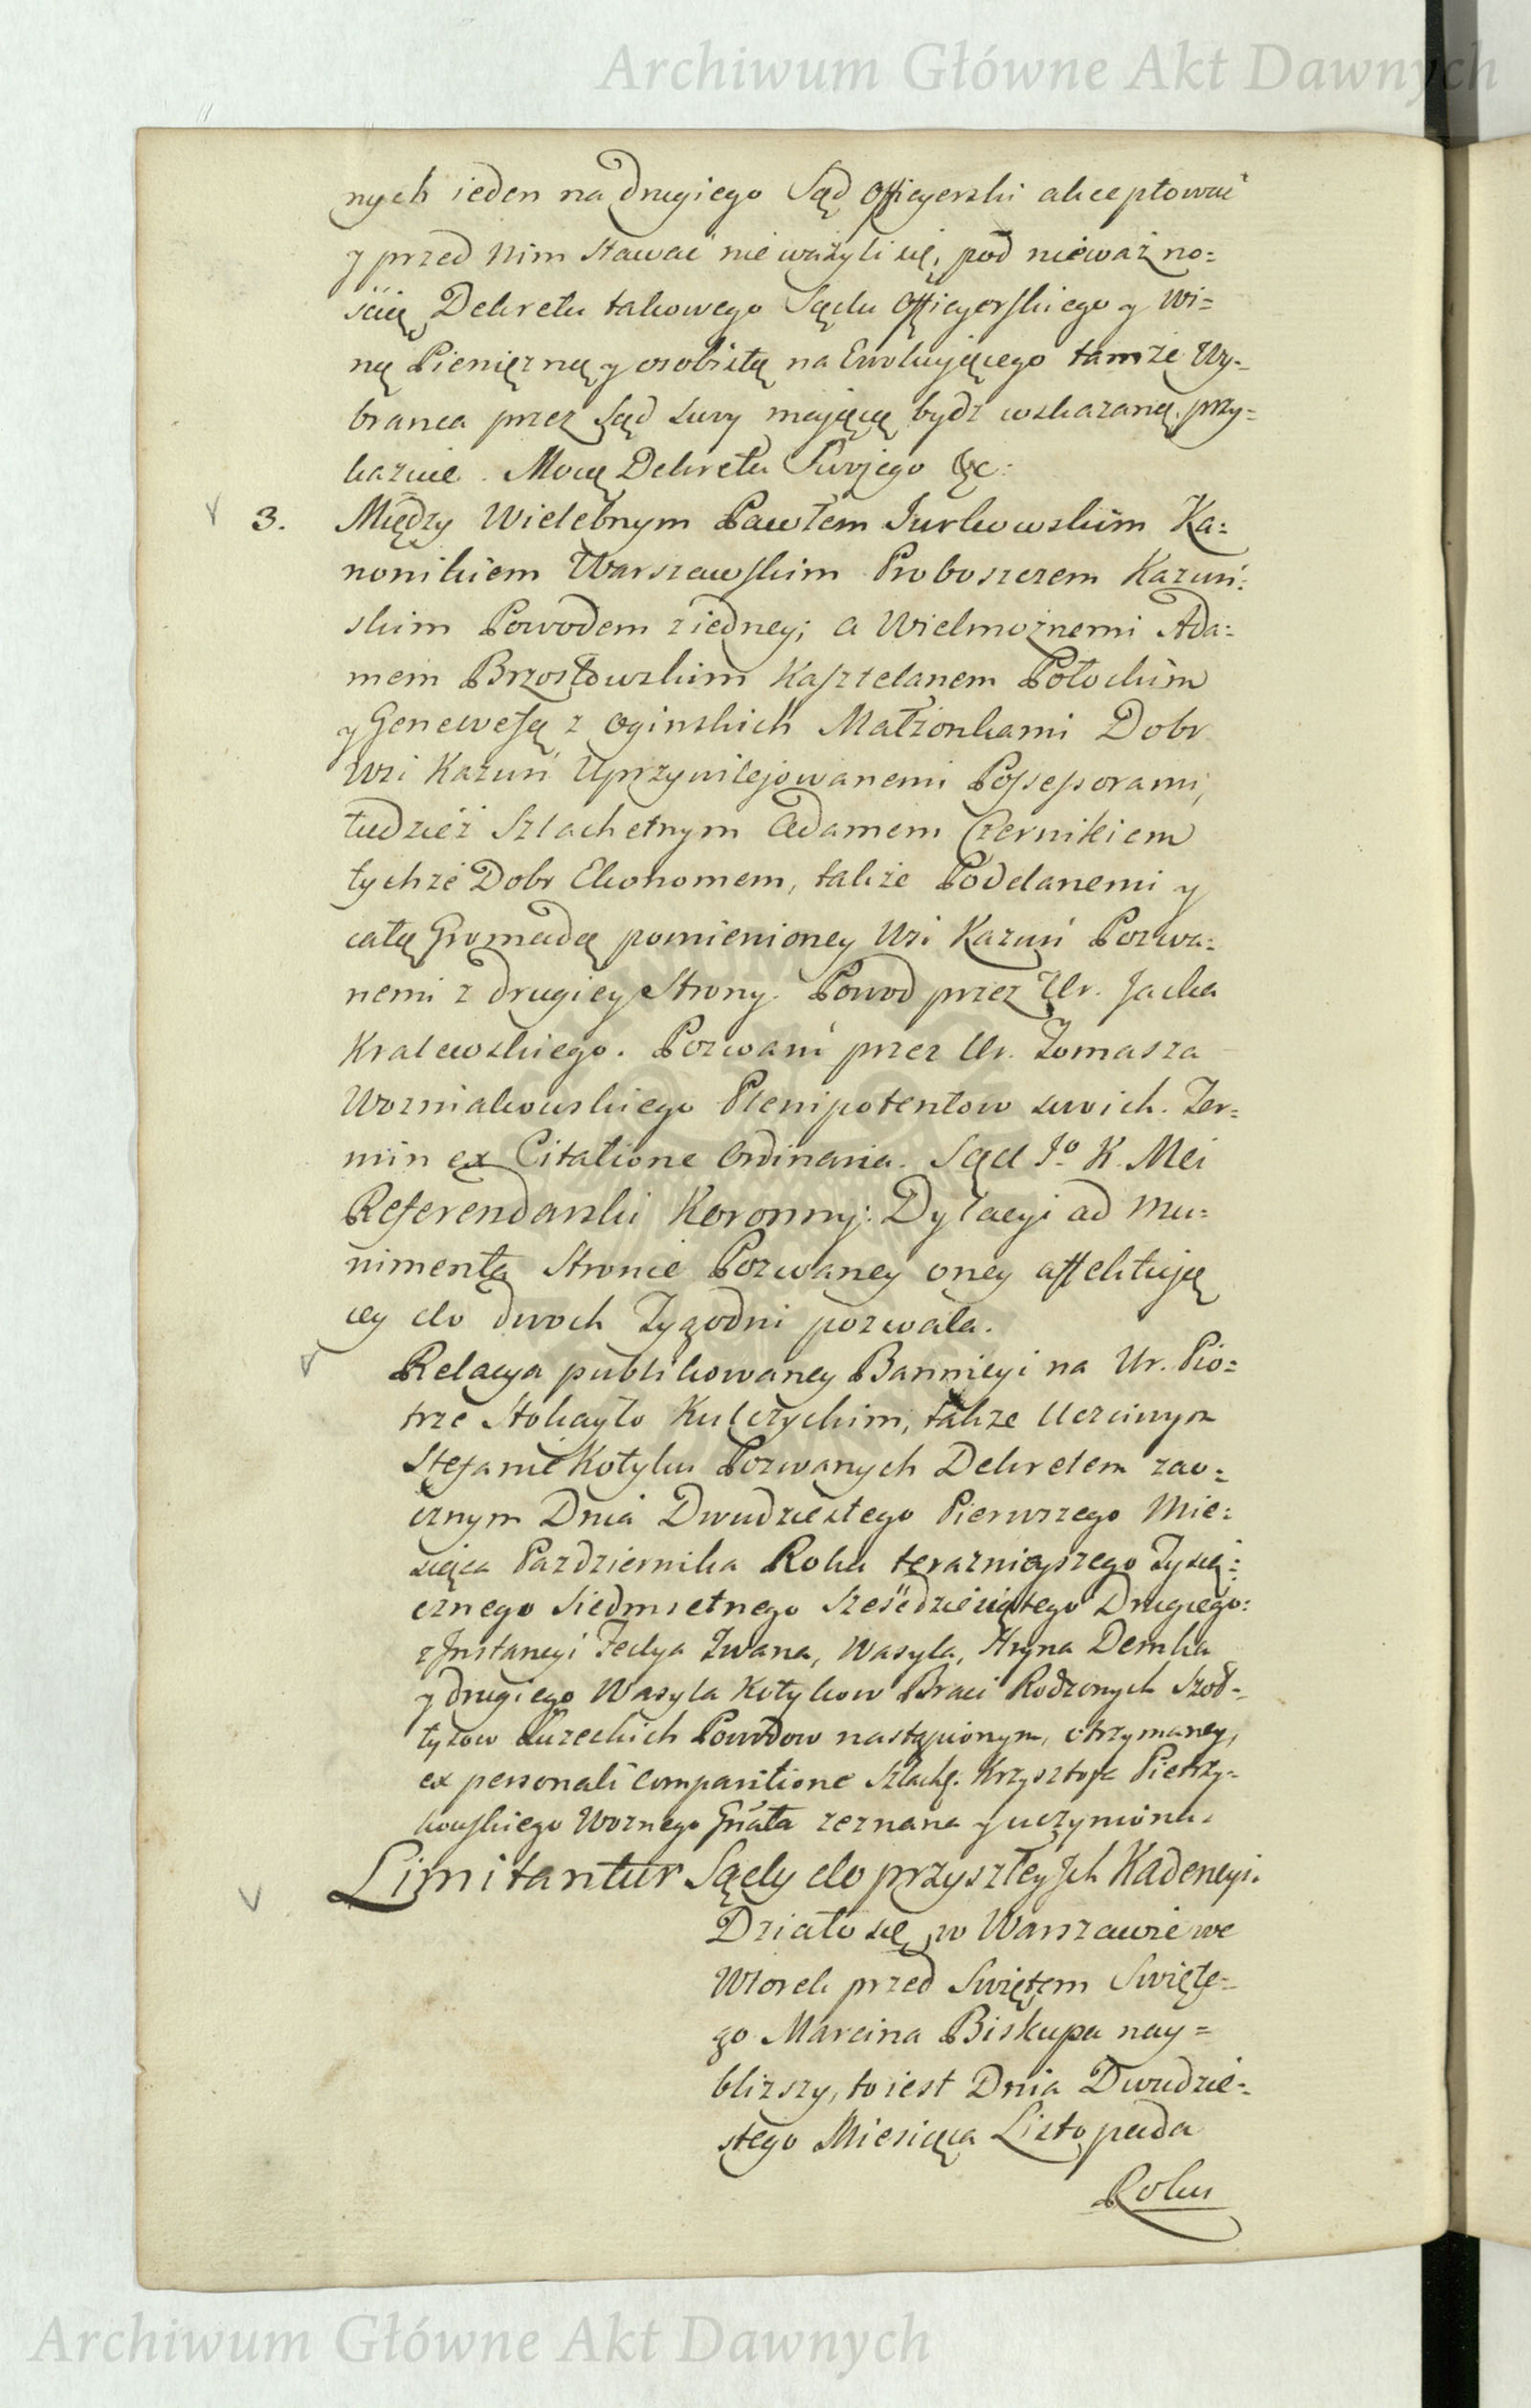 Archiwum Główne Akt Dawnych
nych ieden na drugiego Sąd Officyerski akceptować
y przed nim stawać nie ważyli się, pod nieważno=
ścią Dekretu takowego Sądu Officyerskiego y Wi=
ną Pienięzną y osobistą na Ewokuiącego tamże Wy=
branca przez Sąd swoy maiącą bydź wskazaną, przy=
kazuie. Mocą Dekretu Swojego &c:
3. Między Wielebnym Pawłem Jurkowskim Ka=
nonikiem Warszawskim Proboszczem Kazuń=
skim Powodem z iedney; a Wielmożnemi Ada=
mem Brzostowskim Kasztelanem Połockim
y Genewefą z Oginskich Małżonkami Dobr
Wsi Kazuń Uprzywilejowanemi Possessorami,
tudzież Szlachetnym Adamem Czernikiem
tychże Dobr Ekonomem, także Poddanemi y
całą Gromadą pomienioney Wsi Kazuń Pozwa=
nemi z drugiey Strony. Powod przez Ur. Jacka
Kralewskiego. Pozwani przez Ur. Tomasza
Wozniakowskiego Plenipotentow swoich. Ter=
min ex Citatione Ordinaria. Sąd Jo K. Mci
Referendarski Koronny: Dylacyi ad Mu=
nimenta Stronie Pozwaney oney affektuią
cey do dwoch Tygodni pozwala.
Relacya publikowaney Bannicyi na Ur. Pio=
trze Stokayło Kulczyckim, także Uczciwym
Stefanie Kotyku Pozwanych Dekretem zao=
cznym Dnia Dwudziestego Pierwszego Mie=
siąca Pazdziernika Roku teraznieyszego Tysią=
cznego Siedmsetnego Sześćdziesiątego Drugiego:
z Instancyi Fedya Iwana, Wasyla, Hryna Demka
y drugiego Wasyla Kotykow Braci Rodzonych Szoł=
tysow Kuzeckich Powodow nastąpionym, otrzymaney,
ex personali comparitione Szlach. Krzysztofa Pietrzy=
kowskiego Woznego Gnała zeznana y uczyniona.
Limitantur Sądy do przyszłey Ich Kadencyi.
Działo się w Warszawie we
Wtorek przed Swiętem Swięte=
go Marcina Biskupa nay=
bliższy, to iest Dnia Dwudzie=
stego Miesiąca Listopada
Roku
Archiwum Główne Akt Dawnych